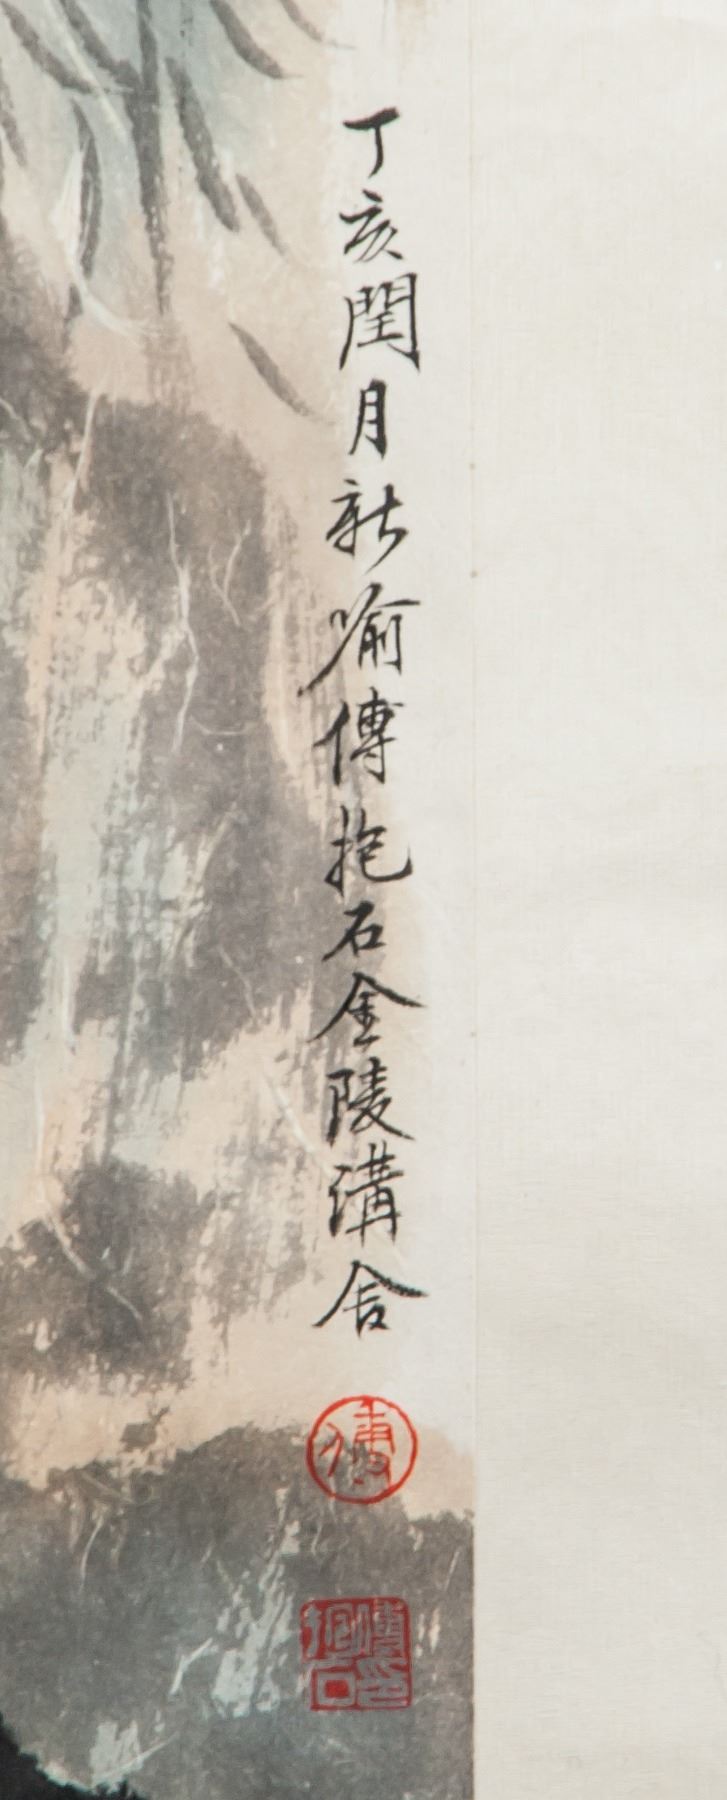 丁亥閏月新喻傅抱石金陵溝舍
傅
傅抱石印